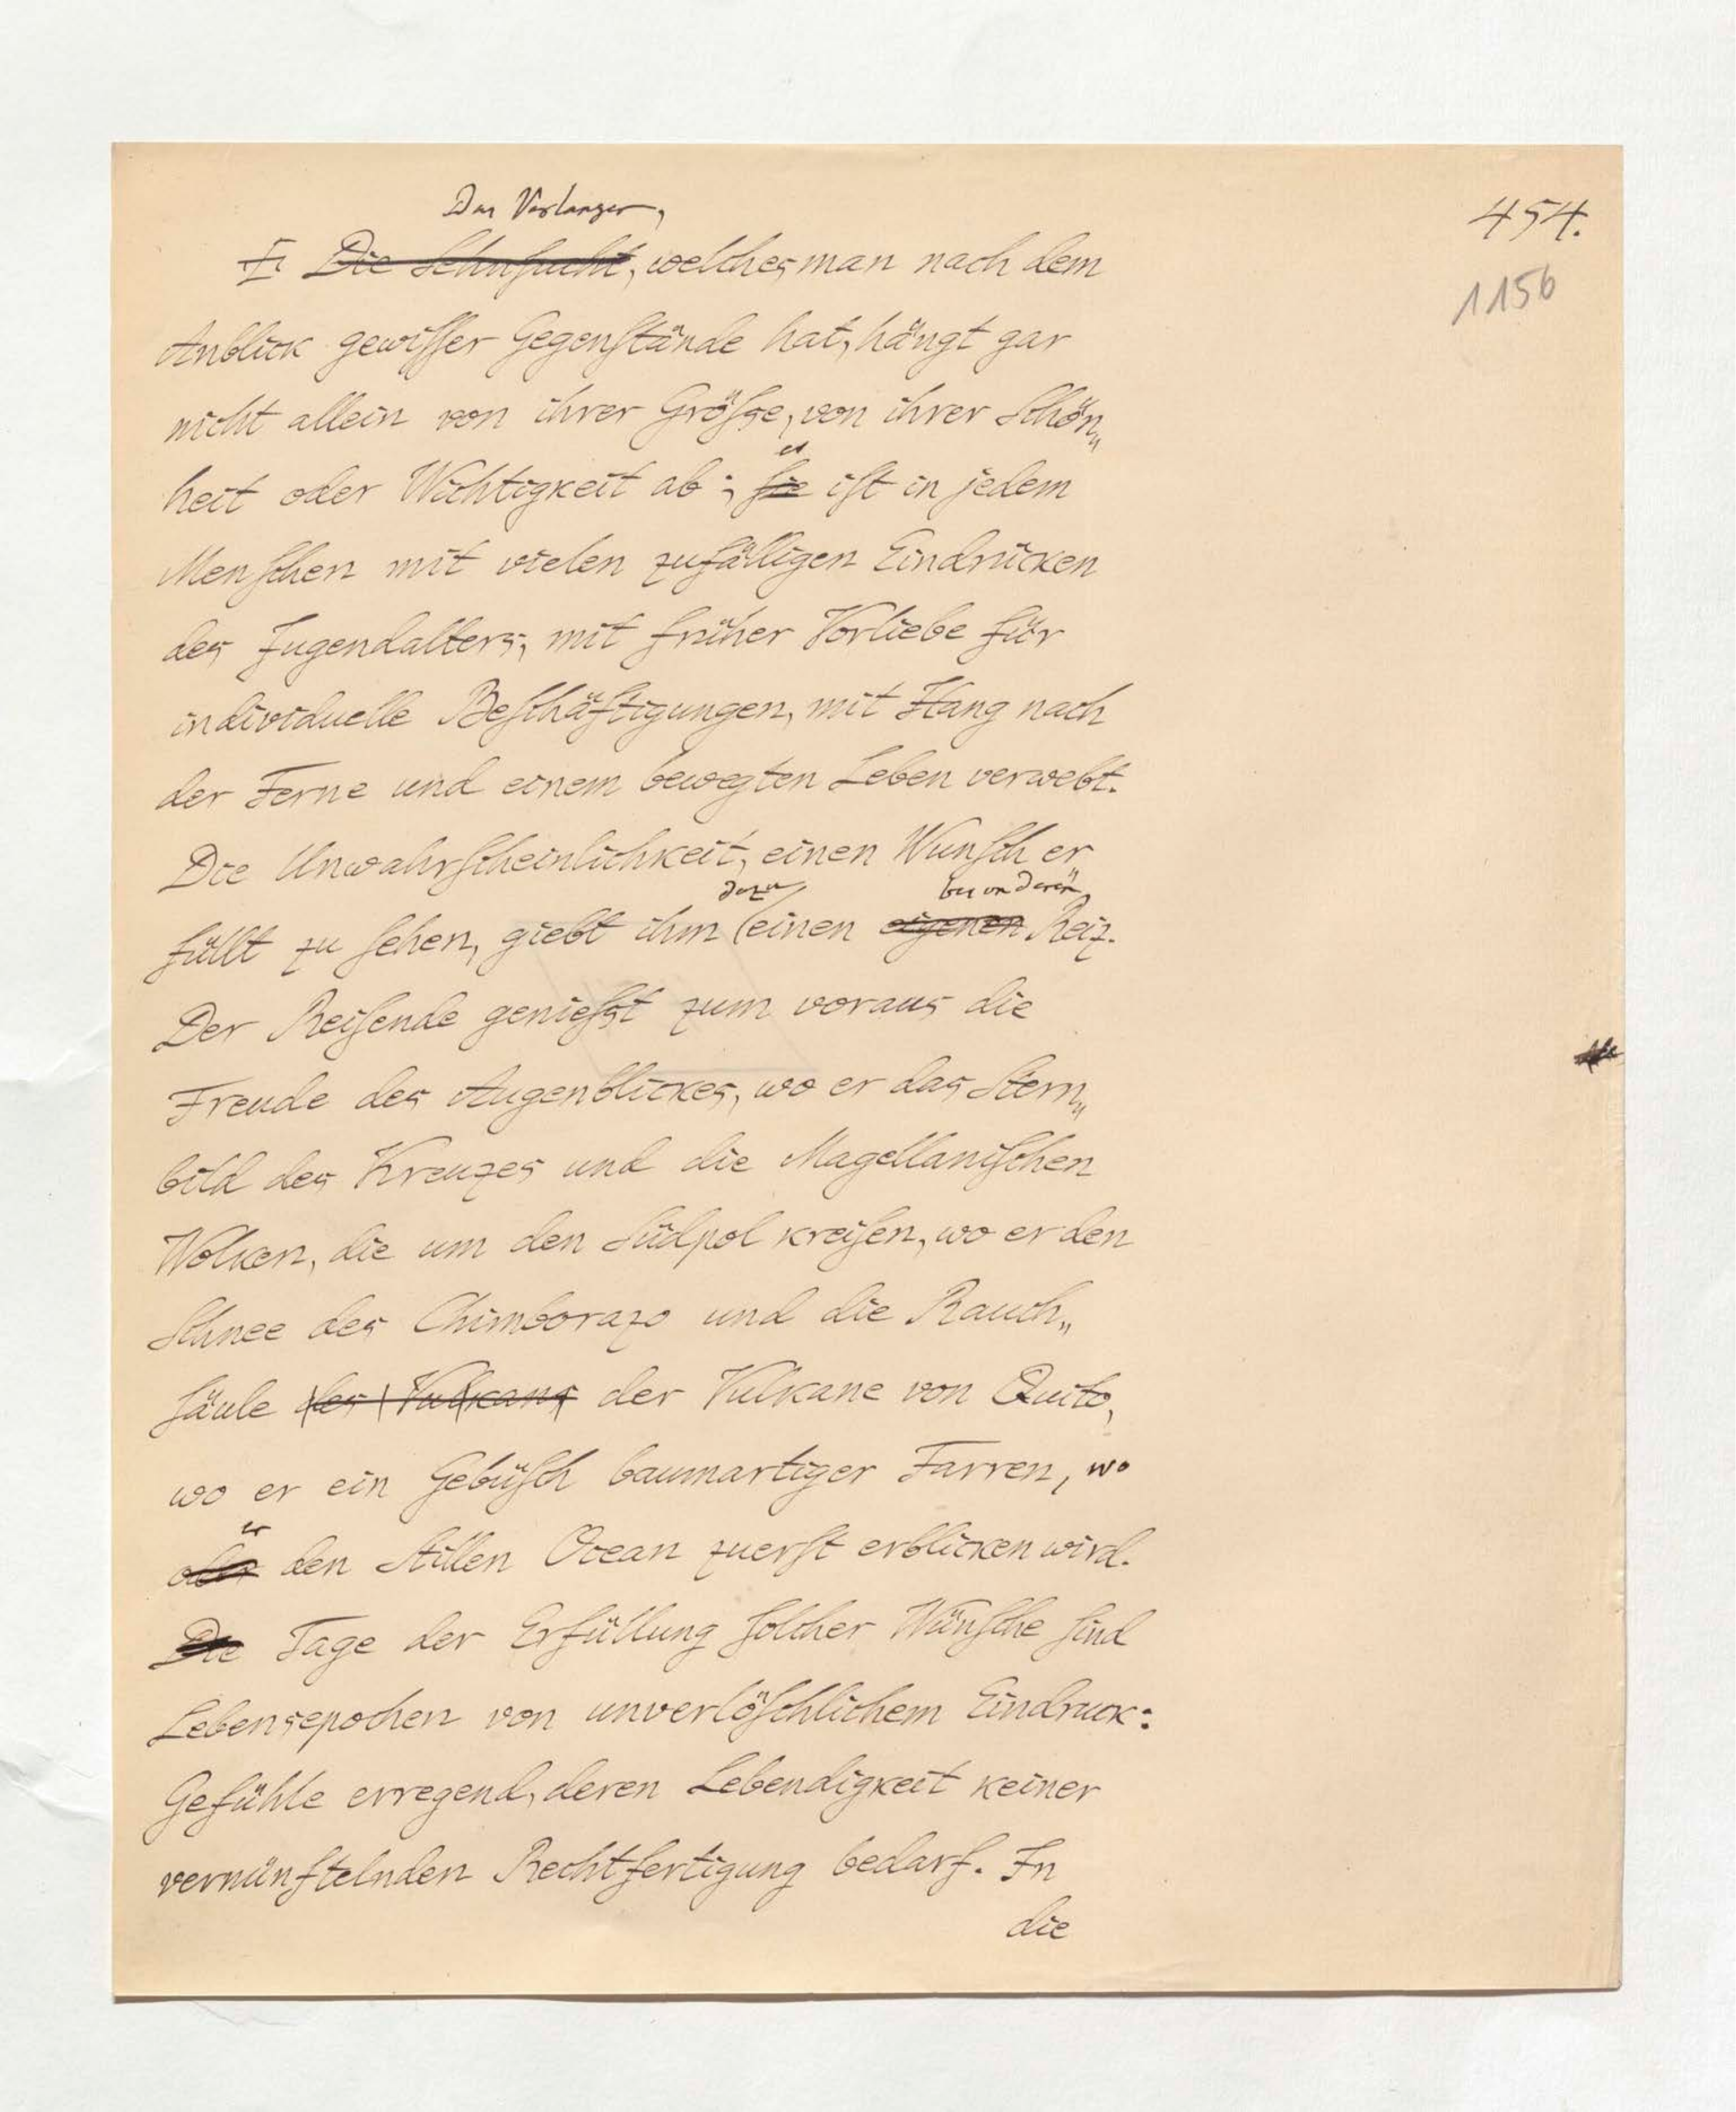 Das Verlangen,
454.
Die Sehnsucht, welches man nach dem
1156
Anblick gewisser Gegenstände hat, hängt gar
nicht allein von ihrer Größe, von ihrer Schön„
es
heit oder Wichtigkeit ab; sie ist in jedem
Menschen mit vielen zufälligen Eindrücken
des Jugendalters, mit früher Vorliebe für
individuelle Beschäftigungen, mit Hang nach
der Ferne und einem bewegten Leben verwebt.
Die Unwahrscheinlichkeit, einen Wunsch er
dazu besonderen
füllt zu sehen, giebt ihm einen eigenen Reiz.
Der Reisende genießt zum voraus die
Freude des Augenblickes, wo er das Stern„
bild des Kreuzes und die Magellanischen
Wolken, die um den Südpol kreisen, wo er den
Schnee des Chimborazo und die Rauch„
säule des Vulkans der Vulkane von Quito,
wo er ein Gebüsch baumartiger Farren, wo
er
oder den Stillen Ocean zuerst erblicken wird.
Die Tage der Erfüllung solcher Wünsche sind
Lebensepochen von unverlöschlichem Eindruck:
Gefühle erregend, deren Lebendigkeit keiner
vernünftelnden Rechtfertigung bedarf. In
die